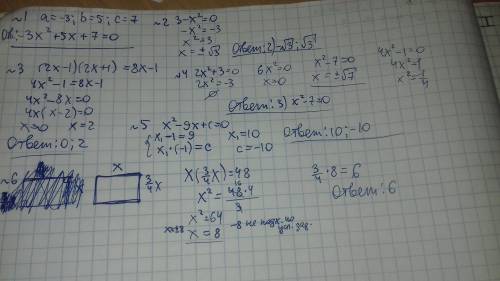 ~1 a=-3; b=5; c=7
Ов: -3x²+5x+7=0
~2 3-x²=0
-x²=-3
x²=3
x=±√3
Ответ: 2) -√3; √3
~3 (2x-1)(2x+1)=8x-1
4x²-1=8x-1
4x²-8x=0
4x(x-2)=0
x=0 x=2
Ответ: 0; 2
~4 2x²+3=0
2x²=-3
∅
6x²=0
x=0
x²-7=0
x=±√7
4x²-1=0
4x²=1
x²=1/4
Ответ: 3) x²-7=0
~5 x²-9x+c=0
{x₁-1=9
x₁·(-1)=c
x₁=10
c=-10
Ответ: 10; -10
~6
x
3/4x
x(3/4x)=48
x²=48·4/3
16
x²=64
x=8
-8 не подх. по
усл. зад.
3/4·8=6
Ответ: 6